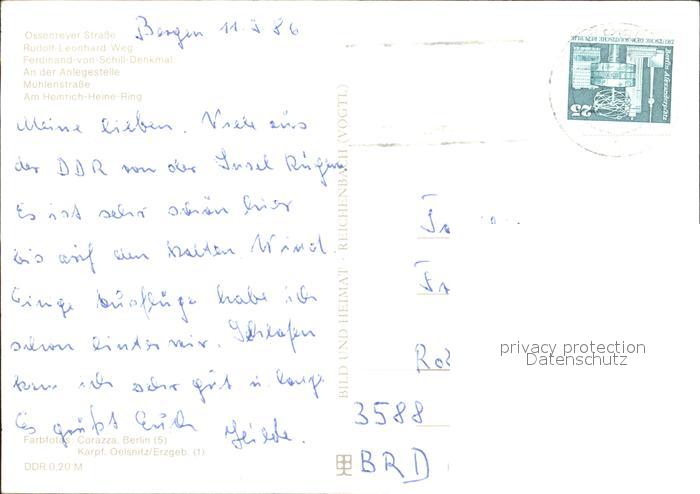 Ossenreyer Straße
Rudolf-Leonhard-Weg
Ferdinand-von-Schill-Denkmal
An der Anlegestelle
Mühlenstraße
Am Heinrich-Heine-Ring
Bergen 11.5.86
Meine lieben. Viele aus
der DDR von der Insel Rügen
Es ist sehr schön hier
bis auf den kalten Wind.
Einge Ausflüge habe ich
schon hinter mir. Schlafen
kann ich sehr gut u. lange
Es grüßt Euch
Farbfotos: Corazza, Berlin (5)
Karpf, Oelsnitz/Erzgeb. (1)
DDR 0,20 M
BILD UND HEIMAT · REICHENBACH (VOGTL)
DEUTSCHE DEMOKRATISCHE REPUBLIK
Berlin, Alexanderplatz
25
3588
BRD
privacy protection
Datenschutz